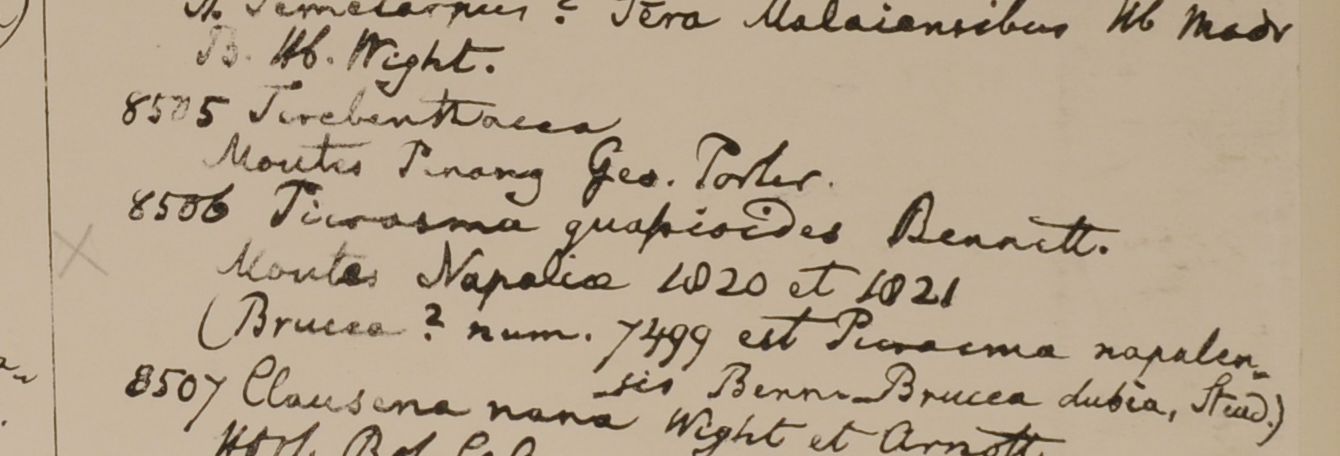 A. Semecarpus? Tera Malaiensibus Hb Madr
B. Hb. Wight.
8505 Terebenthacea
Montes Penang Geo. Porter.
8506 Picrasma quassioides Bennett.
Montes Napaliæ 1820 et 1821
(Brucea? num. 7499 est Picrasma napalen-
sis Benn. Brucea dubia, Steud.)
8507 Clausena nana Wight et Arnott
Hort. Bot. Cal